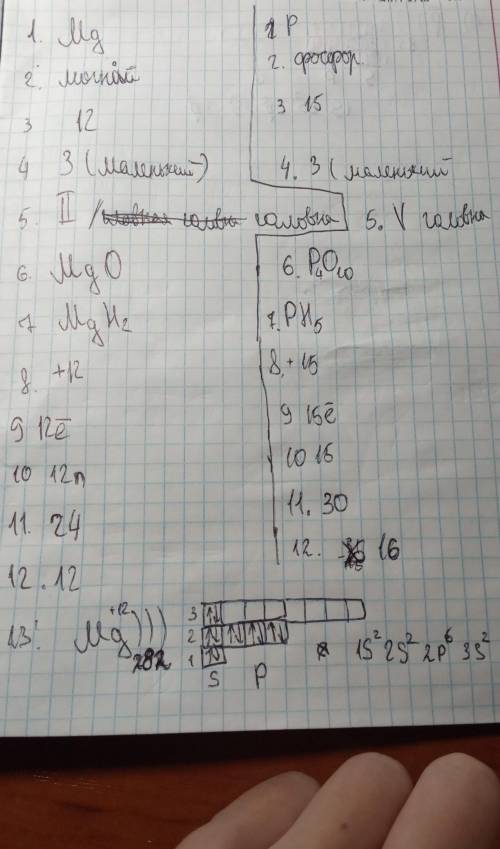 1. Mg
2. магній
3 12
4 3 (маленький)
5. II / головна
6. MgO
7 MgH2
8. +12
9 12ē
10 12n
11. 24
12. 12
1 P
2. фосфор
3 15
4. 3 (маленький
5. V головна
6. P4O10
7. PH5
8. +15
9 15ē
10 15
11. 30
12. 16
13. Mg +12 ) ) )
2 8 2
3 ↑↓
2 ↑↓ ↑↓ ↑↓ ↑↓
1 ↑↓
S P
1S² 2S² 2P⁶ 3S²